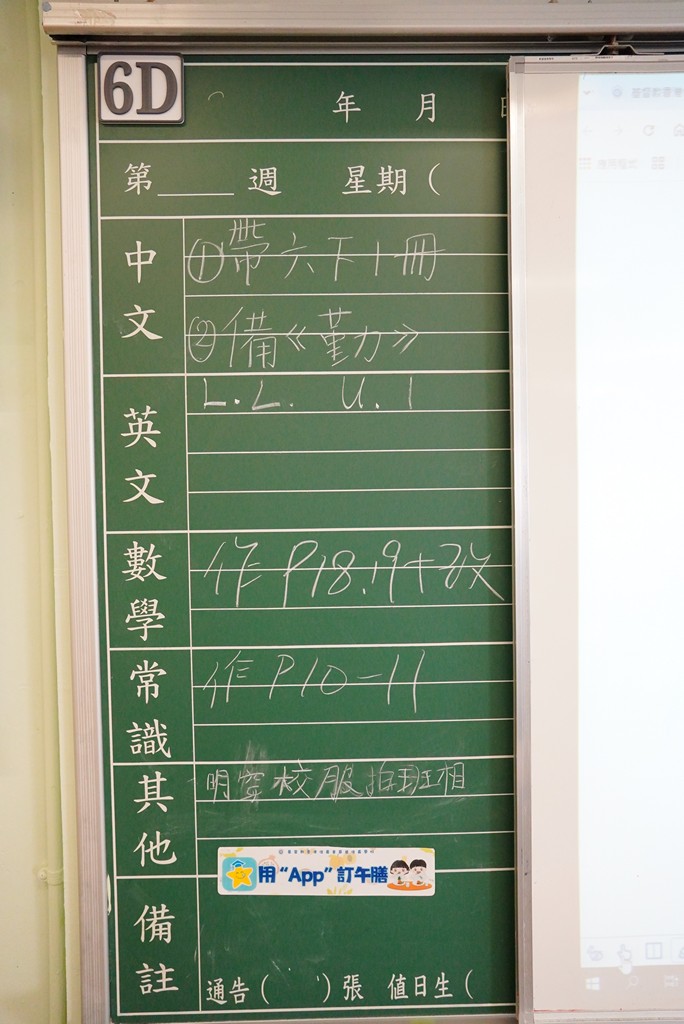 6D
年 月
第____週 星期(
中文
①帶六下1冊
②備《勤力》
英文
L.L. U.1
數學
作 P18,19+改
常識
作 P10-11
其他
明穿校服拍班相
用“App”訂午膳
備註
通告( )張 值日生(